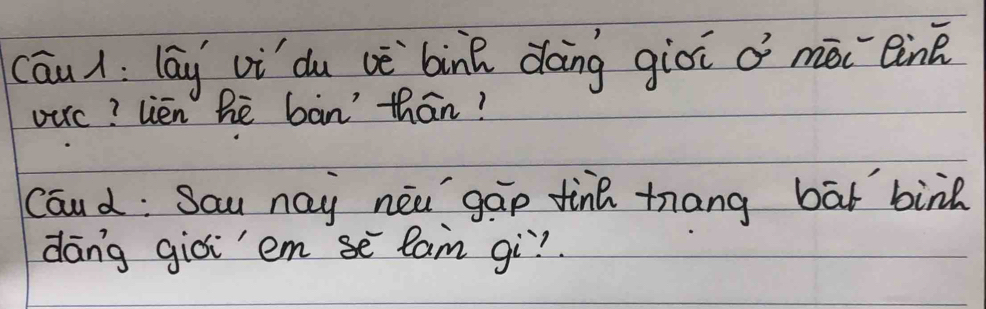 Câu 1: lấy ví dụ về bình đẳng giới ở mỗi lĩnh
vực? liên hệ bản thân?
Câu 2: Sau này nếu gặp tình trạng bất bình
đẳng giới em sẽ làm gì?.